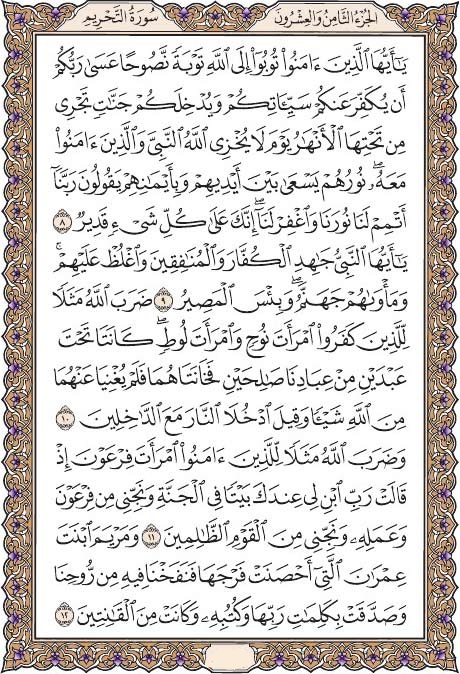 الجُزْءُ الثَّامِنُ وَالعِشْرُونَ
سُورَةُ التَّحْرِيمِ
يَٰٓأَيُّهَا ٱلَّذِينَ ءَامَنُوا۟ تُوبُوٓا۟ إِلَى ٱللَّهِ تَوْبَةً نَّصُوحًا عَسَىٰ رَبُّكُمْ
أَن يُكَفِّرَ عَنكُمْ سَيِّـَٔاتِكُمْ وَيُدْخِلَكُمْ جَنَّٰتٍ تَجْرِى
مِن تَحْتِهَا ٱلْأَنْهَٰرُ يَوْمَ لَا يُخْزِى ٱللَّهُ ٱلنَّبِىَّ وَٱلَّذِينَ ءَامَنُوا۟
مَعَهُۥ ۖ نُورُهُمْ يَسْعَىٰ بَيْنَ أَيْدِيهِمْ وَبِأَيْمَٰنِهِمْ يَقُولُونَ رَبَّنَآ
أَتْمِمْ لَنَا نُورَنَا وَٱغْفِرْ لَنَآ ۖ إِنَّكَ عَلَىٰ كُلِّ شَىْءٍ قَدِيرٌ ٨
يَٰٓأَيُّهَا ٱلنَّبِىُّ جَٰهِدِ ٱلْكُفَّارَ وَٱلْمُنَٰفِقِينَ وَٱغْلُظْ عَلَيْهِمْ ۚ
وَمَأْوَىٰهُمْ جَهَنَّمُ ۖ وَبِئْسَ ٱلْمَصِيرُ ٩ ضَرَبَ ٱللَّهُ مَثَلًا
لِّلَّذِينَ كَفَرُوا۟ ٱمْرَأَتَ نُوحٍ وَٱمْرَأَتَ لُوطٍ ۖ كَانَتَا تَحْتَ
عَبْدَيْنِ مِنْ عِبَادِنَا صَٰلِحَيْنِ فَخَانَتَاهُمَا فَلَمْ يُغْنِيَا عَنْهُمَا
مِنَ ٱللَّهِ شَيْـًٔا وَقِيلَ ٱدْخُلَا ٱلنَّارَ مَعَ ٱلدَّٰخِلِينَ ١٠
وَضَرَبَ ٱللَّهُ مَثَلًا لِّلَّذِينَ ءَامَنُوا۟ ٱمْرَأَتَ فِرْعَوْنَ إِذْ
قَالَتْ رَبِّ ٱبْنِ لِى عِندَكَ بَيْتًا فِى ٱلْجَنَّةِ وَنَجِّنِى مِن فِرْعَوْنَ
وَعَمَلِهِۦ وَنَجِّنِى مِنَ ٱلْقَوْمِ ٱلظَّٰلِمِينَ ١١ وَمَرْيَمَ ٱبْنَتَ
عِمْرَٰنَ ٱلَّتِىٓ أَحْصَنَتْ فَرْجَهَا فَنَفَخْنَا فِيهِ مِن رُّوحِنَا
وَصَدَّقَتْ بِكَلِمَٰتِ رَبِّهَا وَكُتُبِهِۦ وَكَانَتْ مِنَ ٱلْقَٰنِتِينَ ١٢